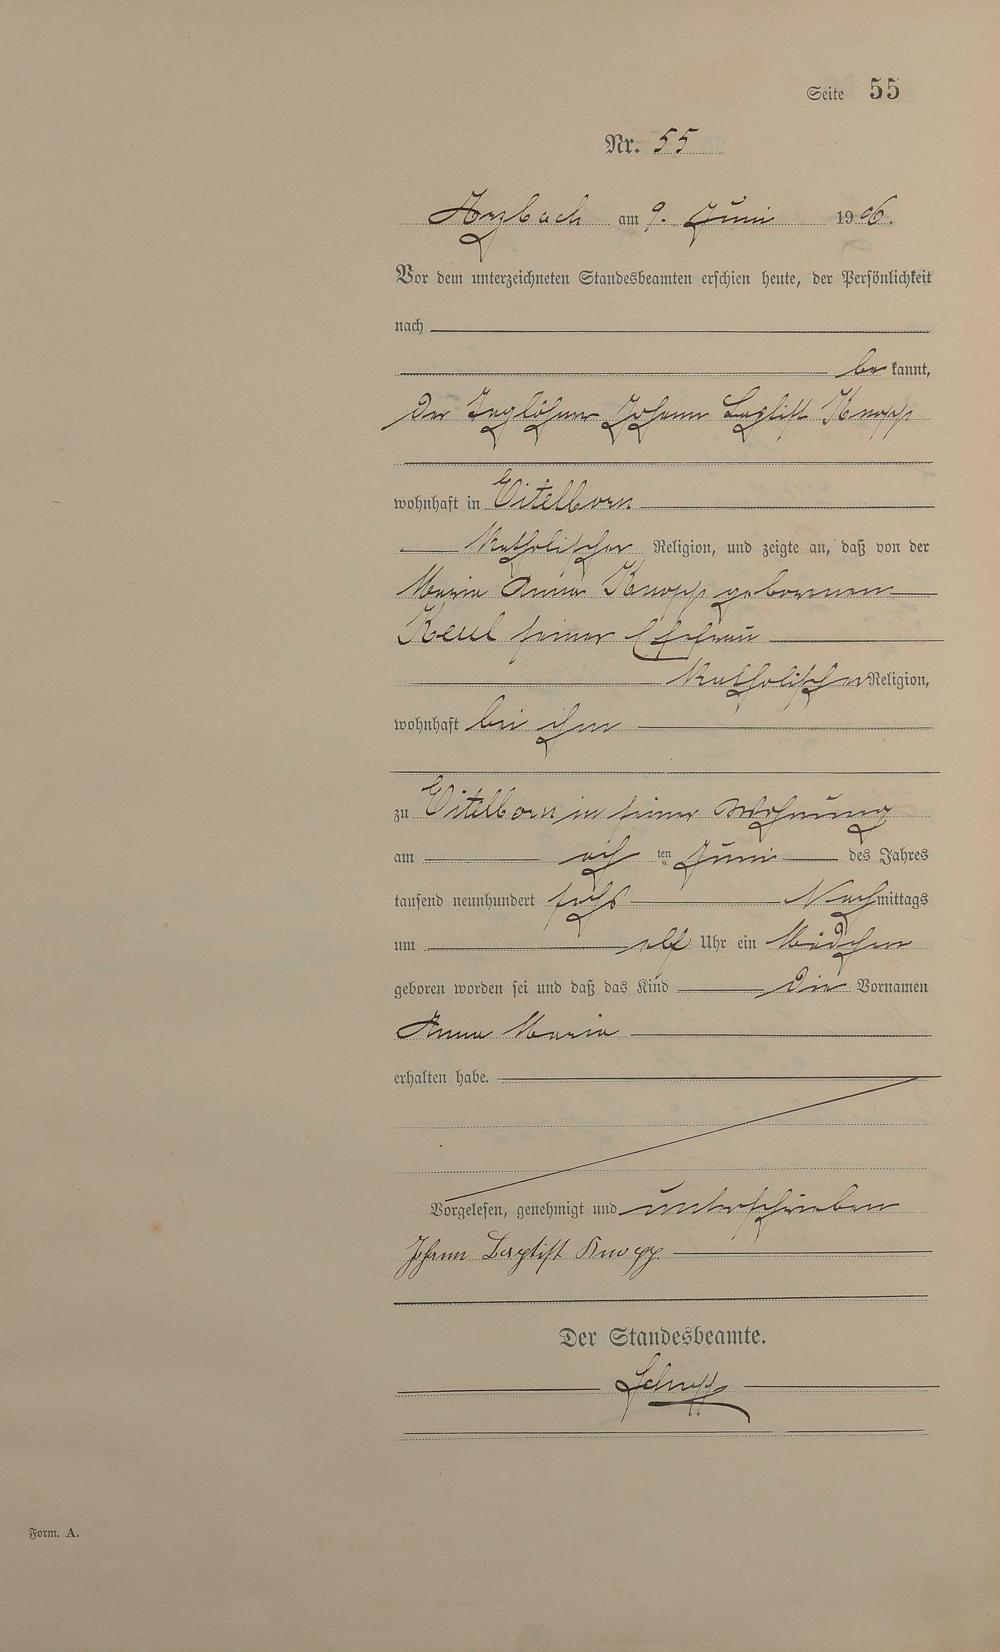 Seite 55
Nr. 55
Arzbach am 9. Juni 1906.
Vor dem unterzeichneten Standesbeamten erschien heute, der Persönlichkeit
nach
be kannt,
der Taglöhner Johann Baptist Knopp
wohnhaft in Eitelborn
katholischer Religion, und zeigte an, daß von der
Maria Anna Knopp geborenen
Keul seiner Ehefrau
katholischer Religion,
wohnhaft bei ihm
zu Eitelborn in seiner Wohnung
am acht ten Juni des Jahres
tausend neunhundert sechs Nachmittags
um elf Uhr ein Mädchen
geboren worden sei und daß das Kind die Vornamen
Anna Maria
erhalten habe.
Vorgelesen, genehmigt und unterschrieben
Johann Baptist Knopp
Der Standesbeamte.
Form. A.